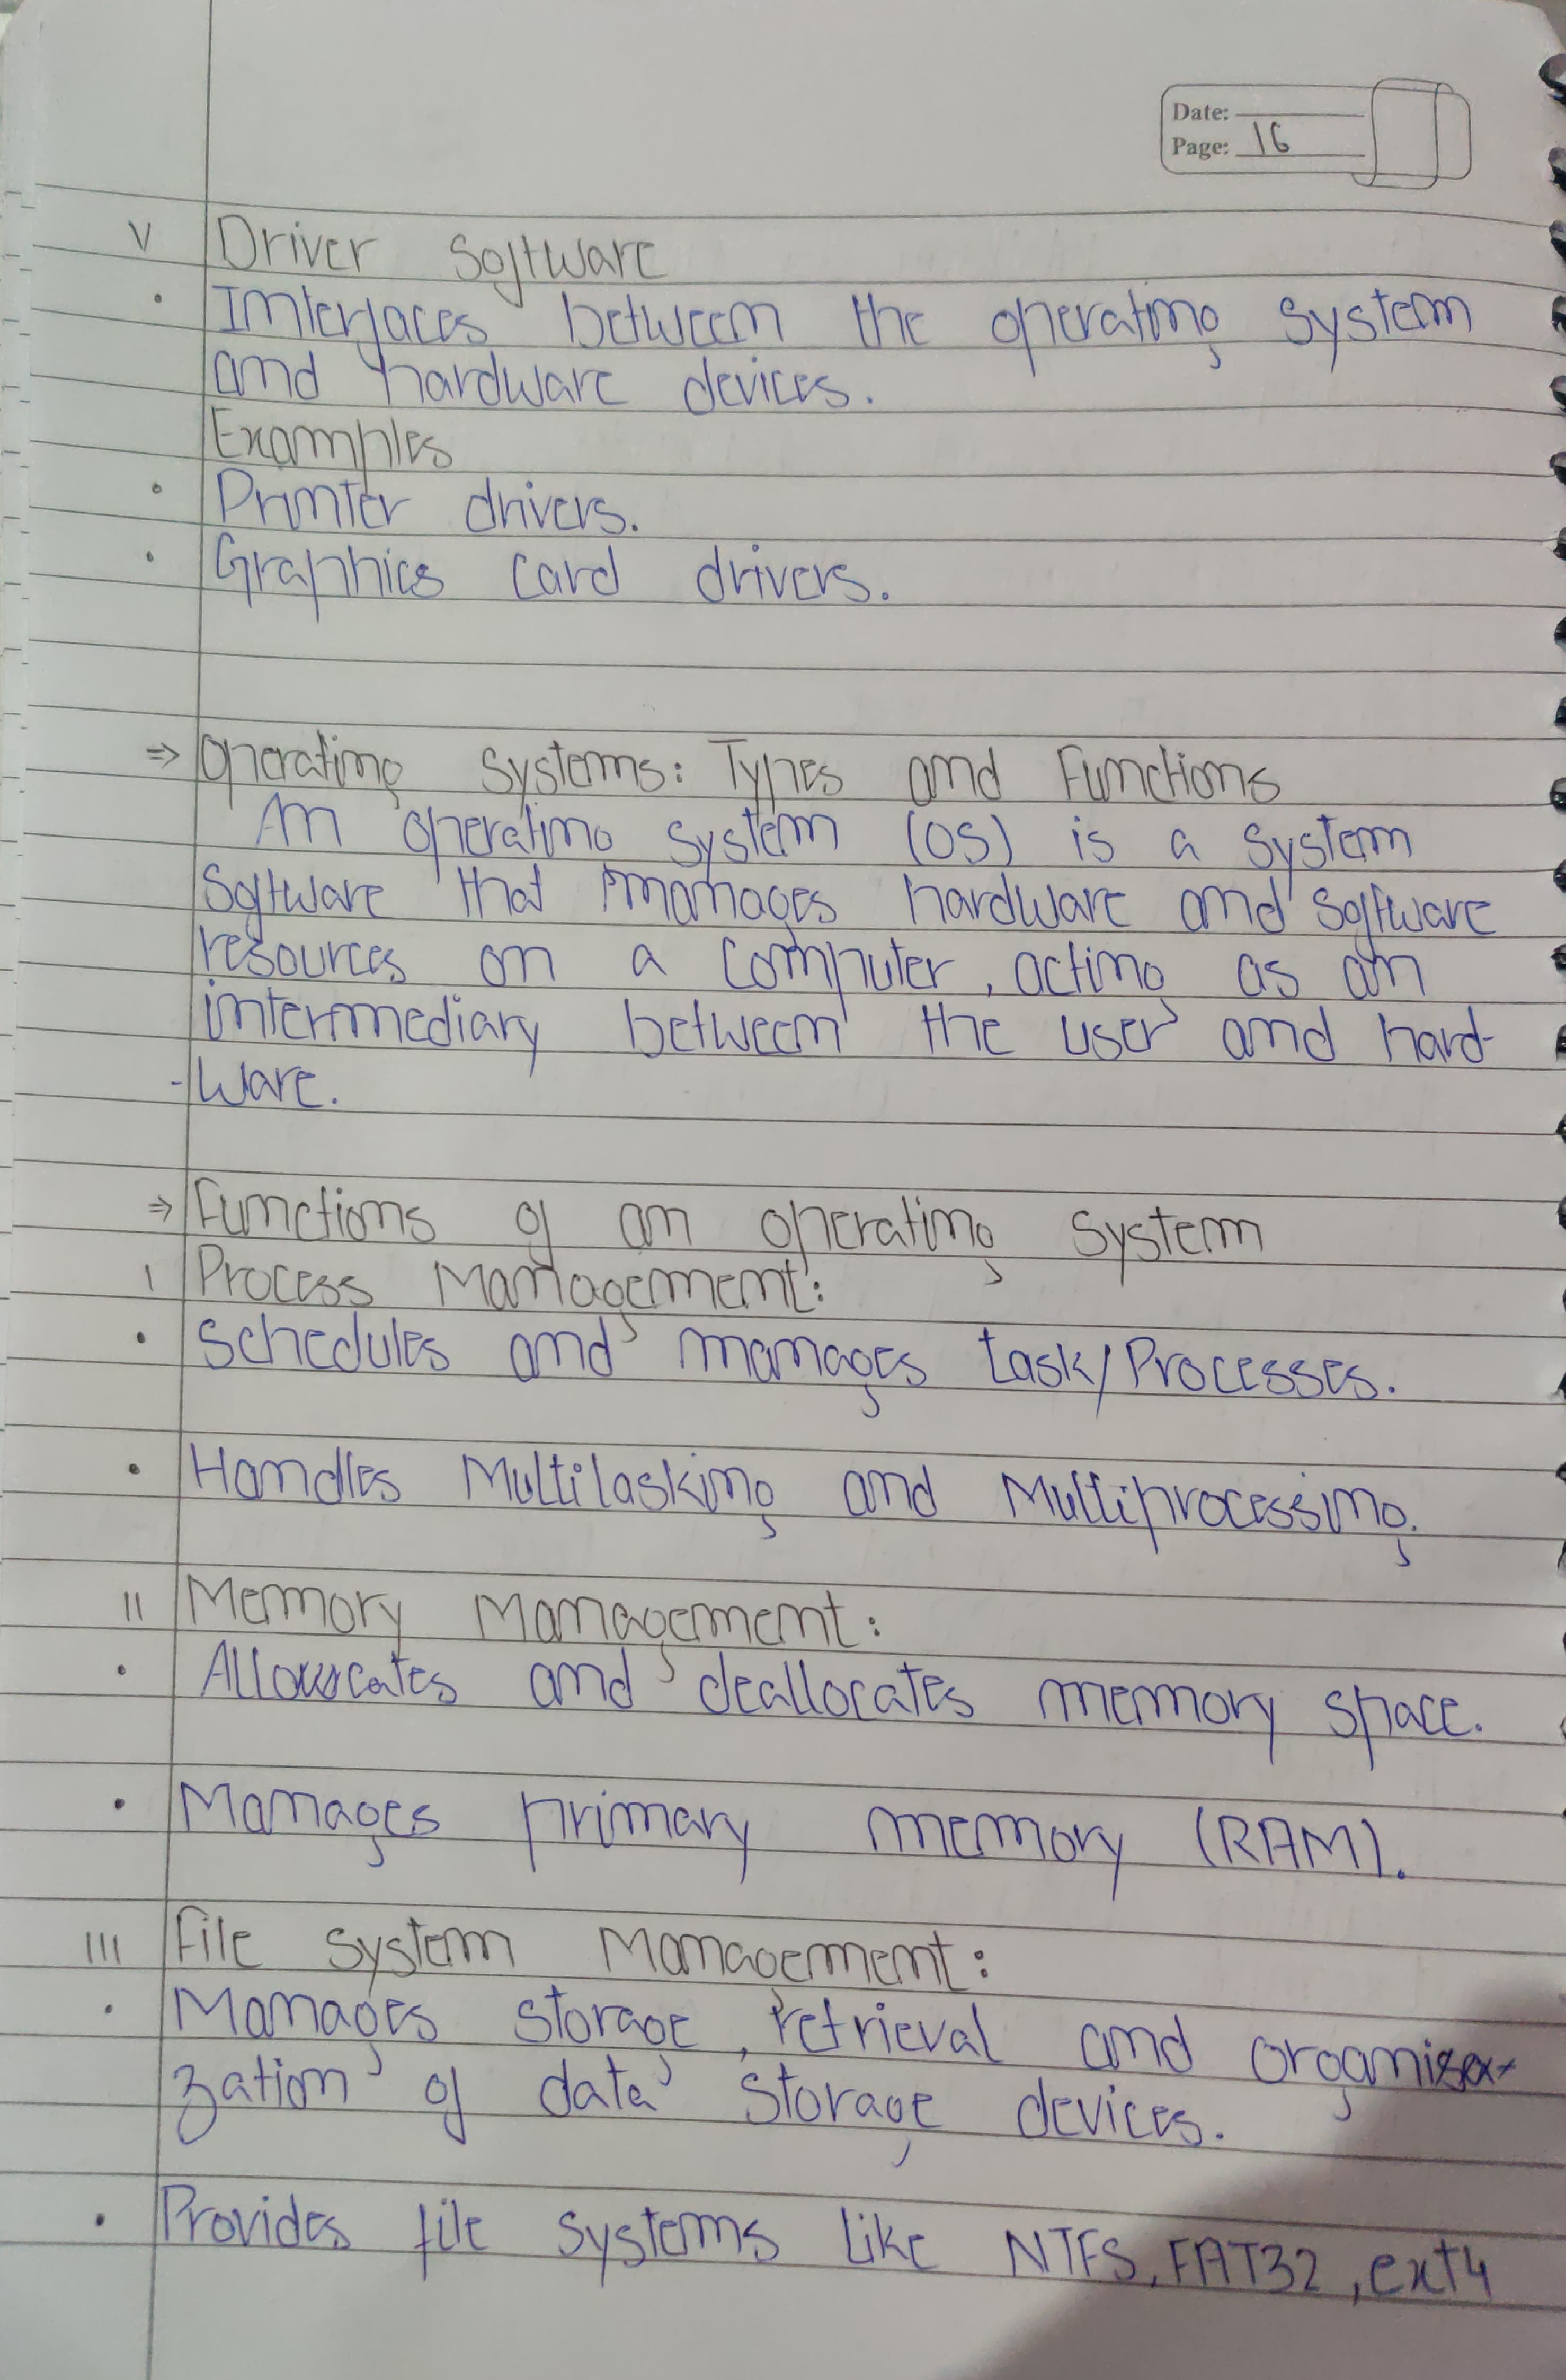 Date:
Page: 16
V Driver Software
• Interfaces between the operating system
and hardware devices.
Examples
• Printer drivers.
• Graphics card drivers.
⇒ Operating Systems: Types and Functions
An operating system (OS) is a system
software that manages hardware and software
resources on a computer, acting as an
intermediary between the user and hard-
-ware.
⇒ Functions of an operating system
I Process Management:
• Schedules and manages task/Processes.
• Handles Multitasking and Multiprocessing.
II Memory Management:
• Allocates and deallocates memory space.
• Manages primary memory (RAM).
III File system Management:
• Manages storage, retrieval and organi
zation of data storage devices.
• Provides file systems like NTFS, FAT32, ext4